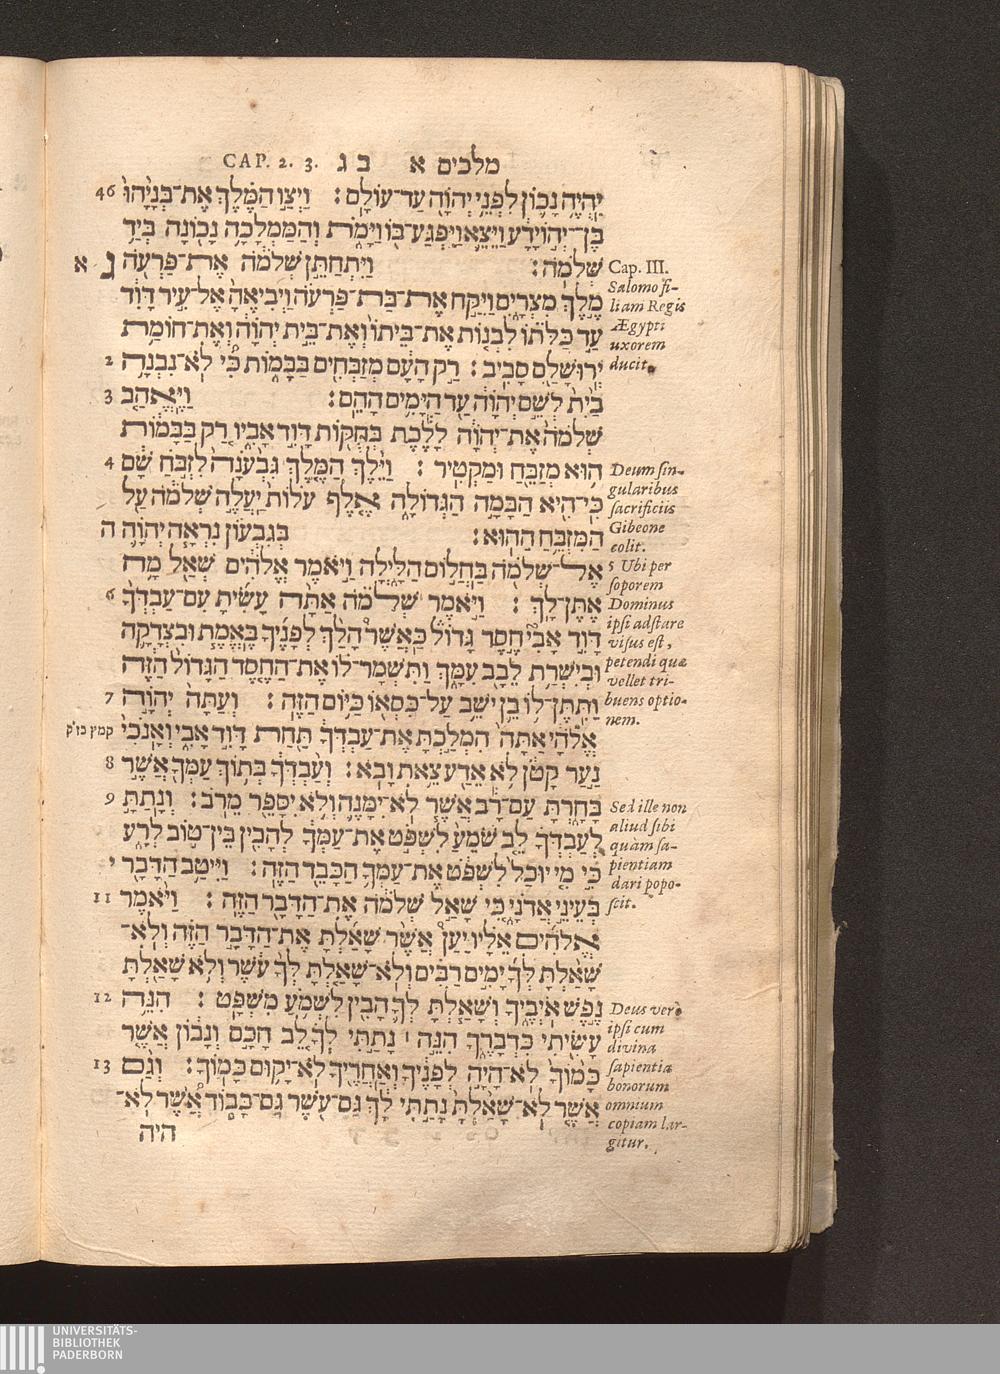 מלכים א ב ג CAP. 2. 3.
יִֽהְיֶ֥ה נָכ֛וֹן לִפְנֵ֥י יְהוָ֖ה עַד־עוֹלָֽם׃ וַיְצַ֣ו הַמֶּ֗לֶךְ אֶת־בְּנָיָ֙הוּ֙ 46
בֶּן־יְה֣וֹיָדָ֔ע וַיֵּצֵ֕א וַיִּפְגַּע־בּ֖וֹ וַיָּמֹ֑ת וְהַמַּמְלָכָ֥ה נָכ֖וֹנָה בְּיַד־
שְׁלֹמֹֽה׃ וַיִּתְחַתֵּ֣ן שְׁלֹמֹ֔ה אֶת־פַּרְעֹ֖ה ג א
מֶ֣לֶךְ מִצְרָ֑יִם וַיִּקַּ֣ח אֶת־בַּת־פַּרְעֹ֗ה וַיְבִיאֶ֙הָ֙ אֶל־עִ֣יר דָּוִ֔ד
עַ֣ד כַּלֹּת֗וֹ לִבְנ֤וֹת אֶת־בֵּיתוֹ֙ וְאֶת־בֵּ֣ית יְהוָ֔ה וְאֶת־חוֹמַ֥ת
יְרוּשָׁלִַ֖ם סָבִֽיב׃ רַ֣ק הָעָ֔ם מְזַבְּחִ֖ים בַּבָּמ֑וֹת כִּ֠י לֹא־נִבְנָ֥ה 2
בַ֙יִת֙ לְשֵׁ֣ם יְהוָ֔ה עַ֖ד הַיָּמִ֥ים הָהֵֽם׃ וַיֶּאֱהַ֤ב 3
שְׁלֹמֹה֙ אֶת־יְהוָ֔ה לָלֶ֕כֶת בְּחֻקּ֖וֹת דָּוִ֣ד אָבִ֑יו רַ֚ק בַּבָּמ֔וֹת
ה֥וּא מְזַבֵּ֖חַ וּמַקְטִֽיר׃ וַיֵּ֨לֶךְ הַמֶּ֤לֶךְ גִּבְעֹ֙נָה֙ לִזְבֹּ֣חַ שָׁ֔ם 4
כִּֽי־הִ֖יא הַבָּמָ֣ה הַגְּדוֹלָ֑ה אֶ֤לֶף עֹלוֹת֙ יַעֲלֶ֣ה שְׁלֹמֹ֔ה עַ֖ל
הַמִּזְבֵּ֥חַ הַהֽוּא׃ בְּגִבְע֗וֹן נִרְאָ֧ה יְהוָ֛ה ה
אֶל־שְׁלֹמֹ֖ה בַּחֲל֣וֹם הַלָּ֑יְלָה וַיֹּ֣אמֶר אֱלֹהִ֔ים שְׁאַ֖ל מָ֥ה
אֶתֶּן־לָֽךְ׃ וַיֹּ֣אמֶר שְׁלֹמֹ֗ה אַתָּ֨ה עָשִׂ֜יתָ עִם־עַבְדְּךָ֙ 6
דָוִ֣ד אָבִי֮ חֶ֣סֶד גָּדוֹל֒ כַּאֲשֶׁר֩ הָלַ֨ךְ לְפָנֶ֜יךָ בֶּאֱמֶ֧ת וּבִצְדָקָ֛ה
וּבְיִשְׁרַ֥ת לֵבָ֖ב עִמָּ֑ךְ וַתִּשְׁמָר־ל֗וֹ אֶת־הַחֶ֤סֶד הַגָּדוֹל֙ הַזֶּ֔ה
וַתִּתֶּן־ל֥וֹ בֵ֛ן יֹשֵׁ֥ב עַל־כִּסְא֖וֹ כַּיּ֥וֹם הַזֶּֽה׃ וְעַתָּה֙ יְהוָ֣ה 7
אֱלֹהָ֔י אַתָּה֙ הִמְלַ֣כְתָּ אֶֽת־עַבְדְּךָ֔ תַּ֖חַת דָּוִ֣ד אָבִ֑י וְאָֽנֹכִי֙ קמץ בז"ק
נַ֣עַר קָטֹ֔ן לֹ֥א אֵדַ֖ע צֵ֥את וָבֹֽא׃ וְעַ֨בְדְּךָ֔ בְּת֥וֹךְ עַמְּךָ֖ אֲשֶׁ֣ר 8
בָּחָ֑רְתָּ עַם־רָ֕ב אֲשֶׁ֧ר לֹֽא־יִמָּנֶ֛ה וְלֹ֥א יִסָּפֵ֖ר מֵרֹֽב׃ וְנָתַתָּ֨ 9
לְעַבְדְּךָ֜ לֵ֤ב שֹׁמֵ֙עַ֙ לִשְׁפֹּ֣ט אֶֽת־עַמְּךָ֔ לְהָבִ֖ין בֵּֽין־ט֣וֹב לְרָ֑ע
כִּ֣י מִ֤י יוּכַל֙ לִשְׁפֹּ֔ט אֶת־עַמְּךָ֥ הַכָּבֵ֖ד הַזֶּֽה׃ וַיִּיטַ֥ב הַדָּבָ֖ר י
בְּעֵינֵ֣י אֲדֹנָ֑י כִּ֚י שָׁאַ֣ל שְׁלֹמֹ֔ה אֶת־הַדָּבָ֖ר הַזֶּֽה׃ וַיֹּ֨אמֶר 11
אֱלֹהִ֜ים אֵלָ֗יו יַעַן֩ אֲשֶׁ֨ר שָׁאַ֜לְתָּ אֶת־הַדָּבָ֣ר הַזֶּ֗ה וְלֹֽא־
שָׁאַ֨לְתָּ לְּךָ֜ יָמִ֣ים רַבִּ֗ים וְלֹֽא־שָׁאַ֤לְתָּ לְּךָ֙ עֹ֔שֶׁר וְלֹ֥א שָׁאַ֖לְתָּ
נֶ֣פֶשׁ אֹיְבֶ֑יךָ וְשָׁאַ֧לְתָּ לְּךָ֛ הָבִ֖ין לִשְׁמֹ֥עַ מִשְׁפָּֽט׃ הִנֵּ֥ה 12
עָשִׂ֖יתִי כִּדְבָרֶ֑ךָ הִנֵּ֣ה ׀ נָתַ֣תִּי לְךָ֗ לֵ֚ב חָכָ֣ם וְנָב֔וֹן אֲשֶׁ֤ר
כָּמ֙וֹךָ֙ לֹא־הָיָ֣ה לְפָנֶ֔יךָ וְאַחֲרֶ֖יךָ לֹא־יָק֥וּם כָּמֽוֹךָ׃ וְגַ֨ם 13
אֲשֶׁ֤ר לֹֽא־שָׁאַ֙לְתָּ֙ נָתַ֣תִּי לָ֔ךְ גַּם־עֹ֖שֶׁר גַּם־כָּב֑וֹד אֲשֶׁ֠ר לֹא־
היה
Cap. III.
Salomo fi-
liam Regis
Ægypti
uxorem
ducit.
Deum sin-
gularibus
sacrificiis
Gibeone
colit.
5 Ubi per
soporem
Dominus
ipsi adstare
visus est,
petendi quæ
vellet tri-
buens optio-
nem.
Sed ille non
aliud sibi
quam sa-
pientiam
dari popo-
scit.
Deus verò
ipsi cum
divina
sapientia
bonorum
omnium
copiam lar-
gitur.
UNIVERSITÄTS-
BIBLIOTHEK
PADERBORN